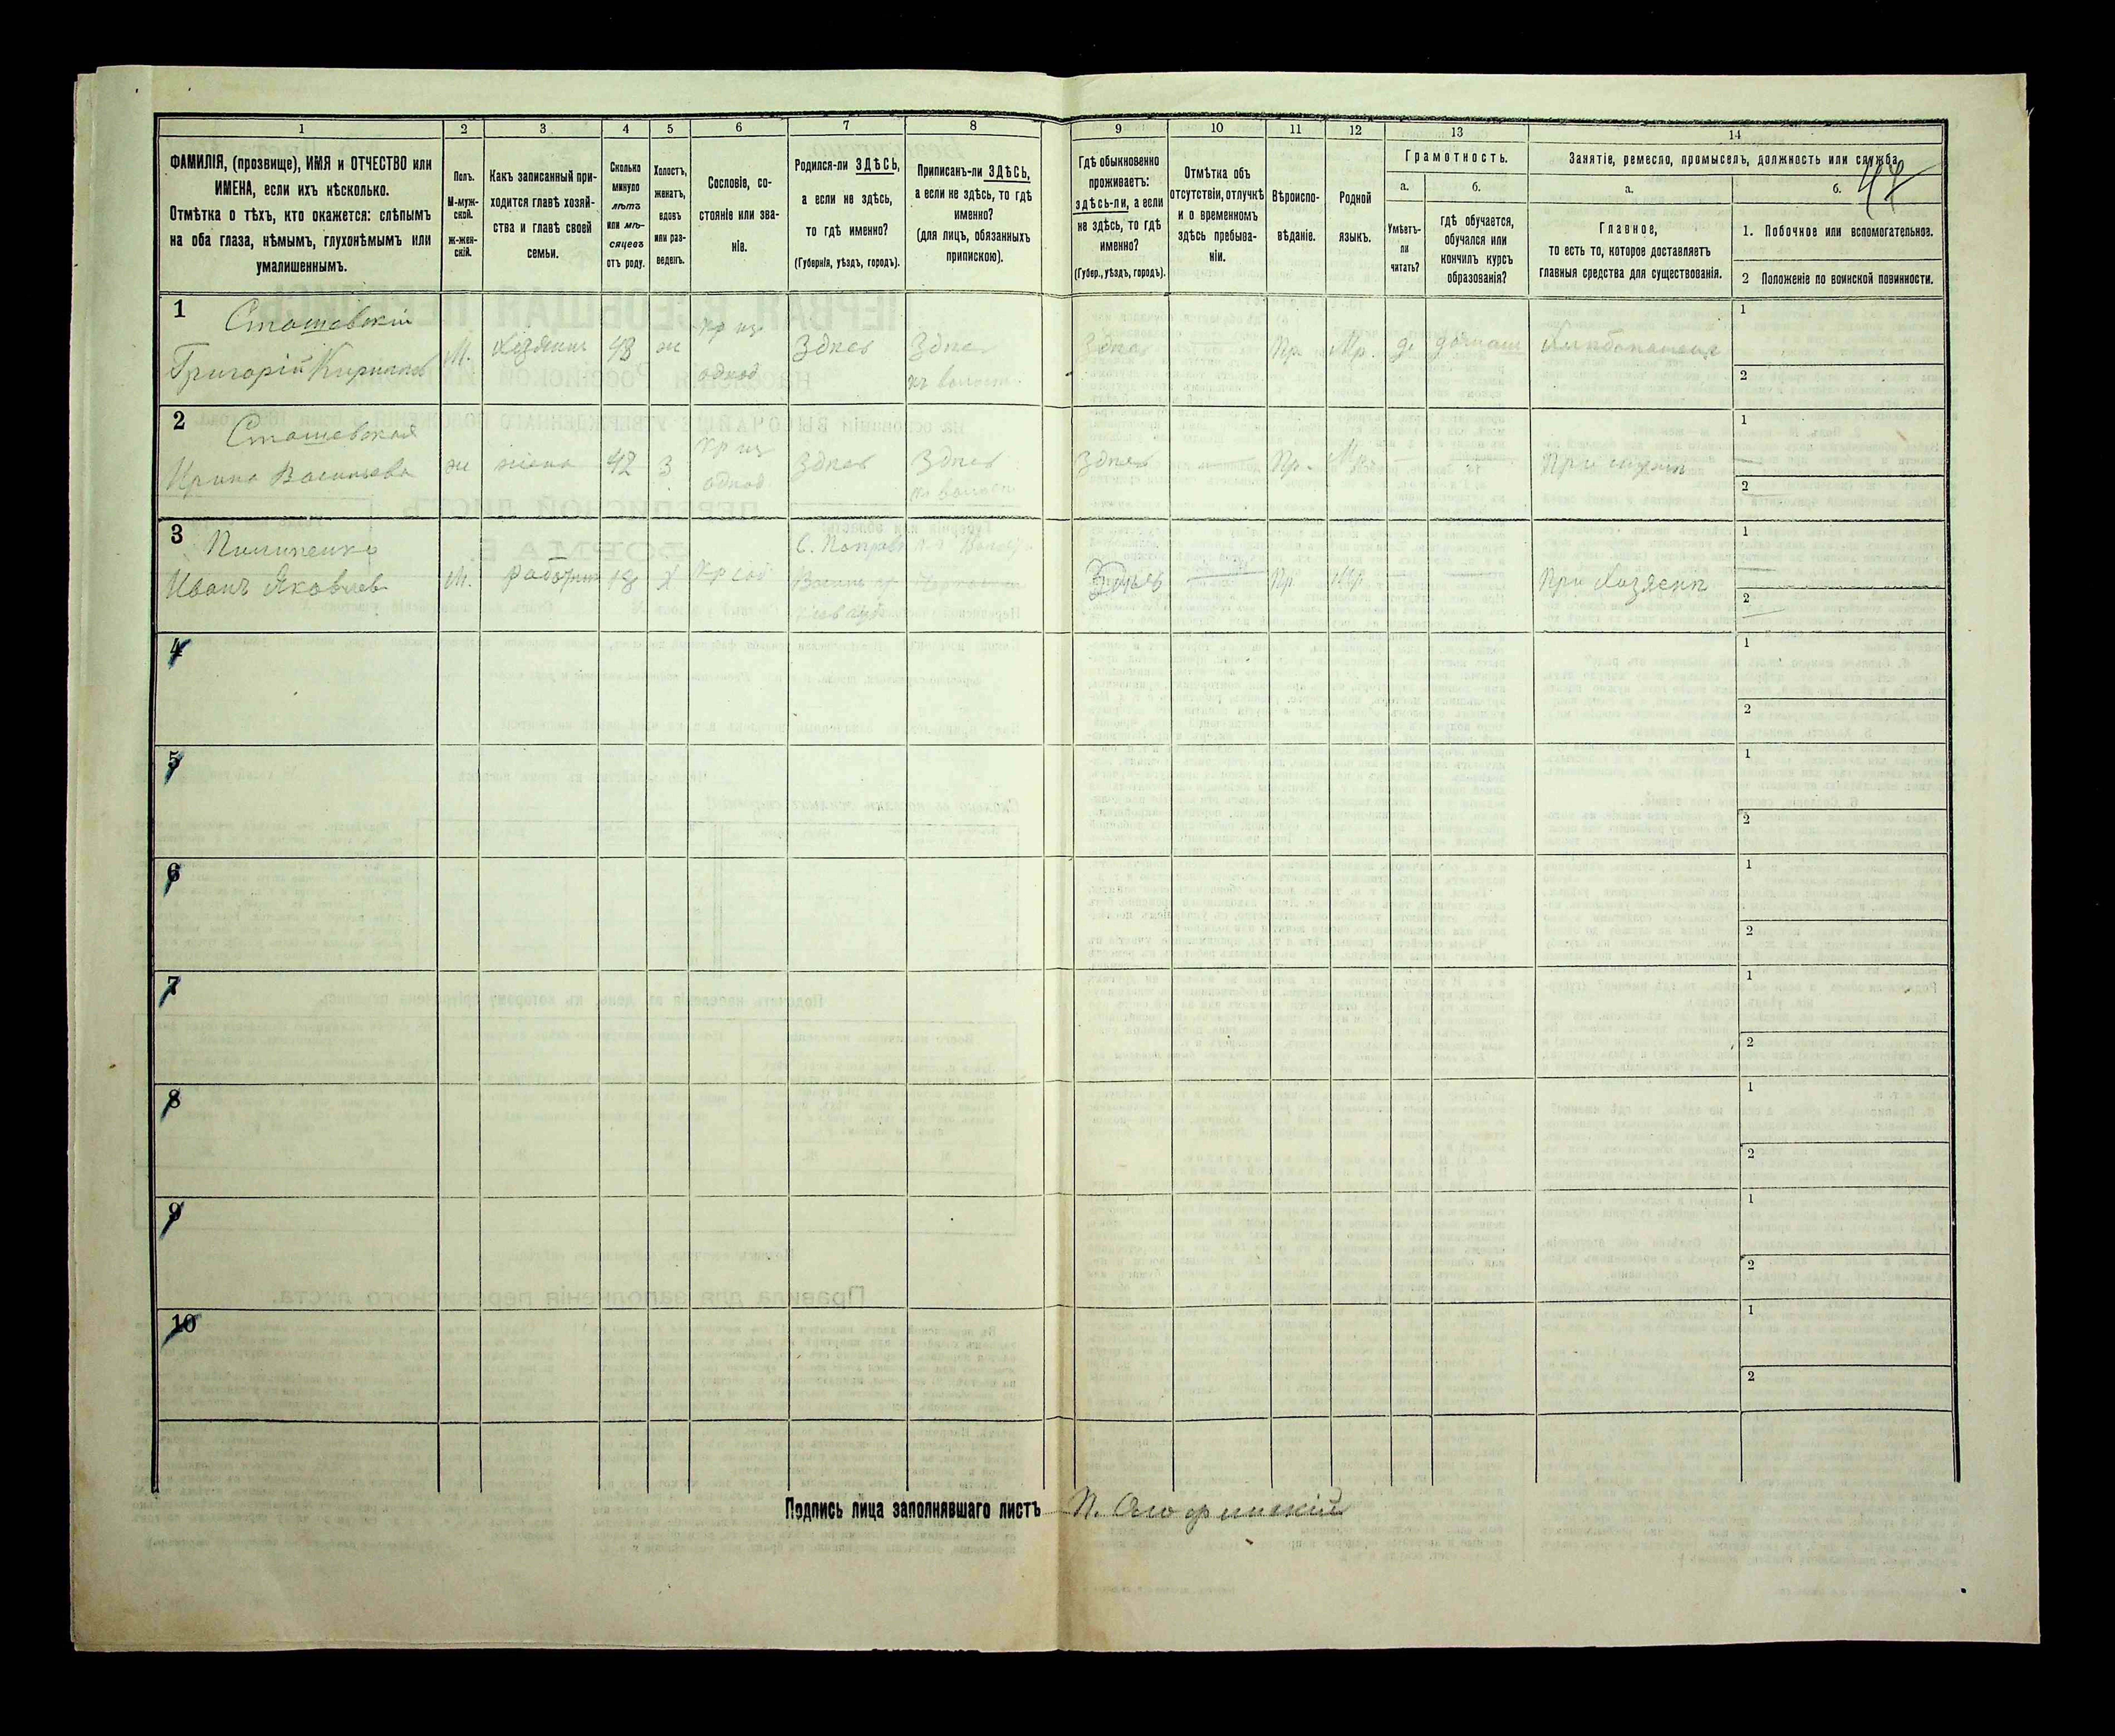 1 2 3 4 5 6 7 8 9 10 11 12 13 14
ФАМИЛІЯ, (прозвище), ИМЯ и ОТЧЕСТВО или
ИМЕНА, если ихъ нѣсколько.
Отмѣтка о тѣхъ, кто окажется: слѣпымъ
на оба глаза, нѣмымъ, глухонѣмымъ или
умалишеннымъ.
Полъ.
М-муж-
ской.
ж-жен-
скій.
Какъ записанный при-
ходится главѣ хозяй-
ства и главѣ своей
семьи.
Сколько
минуло
лѣтъ
или мѣ-
сяцевъ
отъ роду.
Холостъ,
женатъ,
вдовъ
или раз-
веденъ.
Сословіе, со-
стояніе или зва-
ніе.
Родился-ли ЗДѢСЬ,
а если не здѣсь,
то гдѣ именно?
(Губернія, уѣздъ, городъ).
Приписанъ-ли ЗДѢСЬ,
а если не здѣсь, то гдѣ
именно?
(для лицъ, обязанныхъ
припискою).
Гдѣ обыкновенно
проживаетъ:
здѣсь-ли, а если
не здѣсь, то гдѣ
именно?
(Губер., уѣздъ, городъ).
Отмѣтка объ
отсутствіи, отлучкѣ
и о временномъ
здѣсь пребыва-
ніи.
Вѣроиспо-
вѣданіе.
Родной
языкъ.
Грамотность.
а.
Умѣетъ-
ли
читать?
б.
гдѣ обучается,
обучался или
кончилъ курсъ
образованія?
Занятіе, ремесло, промыселъ, должность или служба.
а.
Главное,
то есть то, которое доставляетъ
главныя средства для существованія.
б.
1. Побочное или вспомогательное.
2 Положеніе по воинской повинности.
1
Сташевскій
Григорій Кириловъ
М.
Хозяинъ
ж
однод
Здѣсь
Здѣсь
Здѣсь
Пр.
Мр.
да
домаш
1
2
2
Сташевская
Ирина Васильева
ж
жена
42
З
однод
Здѣсь
Здѣсь
Здѣсь
Пр.
Мр.
При мужѣ
1
2
3
Пилипенко
Иванъ Яковлев
М.
работн
18
Х
Здѣсь
Пр
Мр
При Хозяенѣ
1
2
4
1
2
5
1
2
6
1
2
7
1
2
8
1
2
9
1
2
10
1
2
Подпись лица заполнявшаго листъ